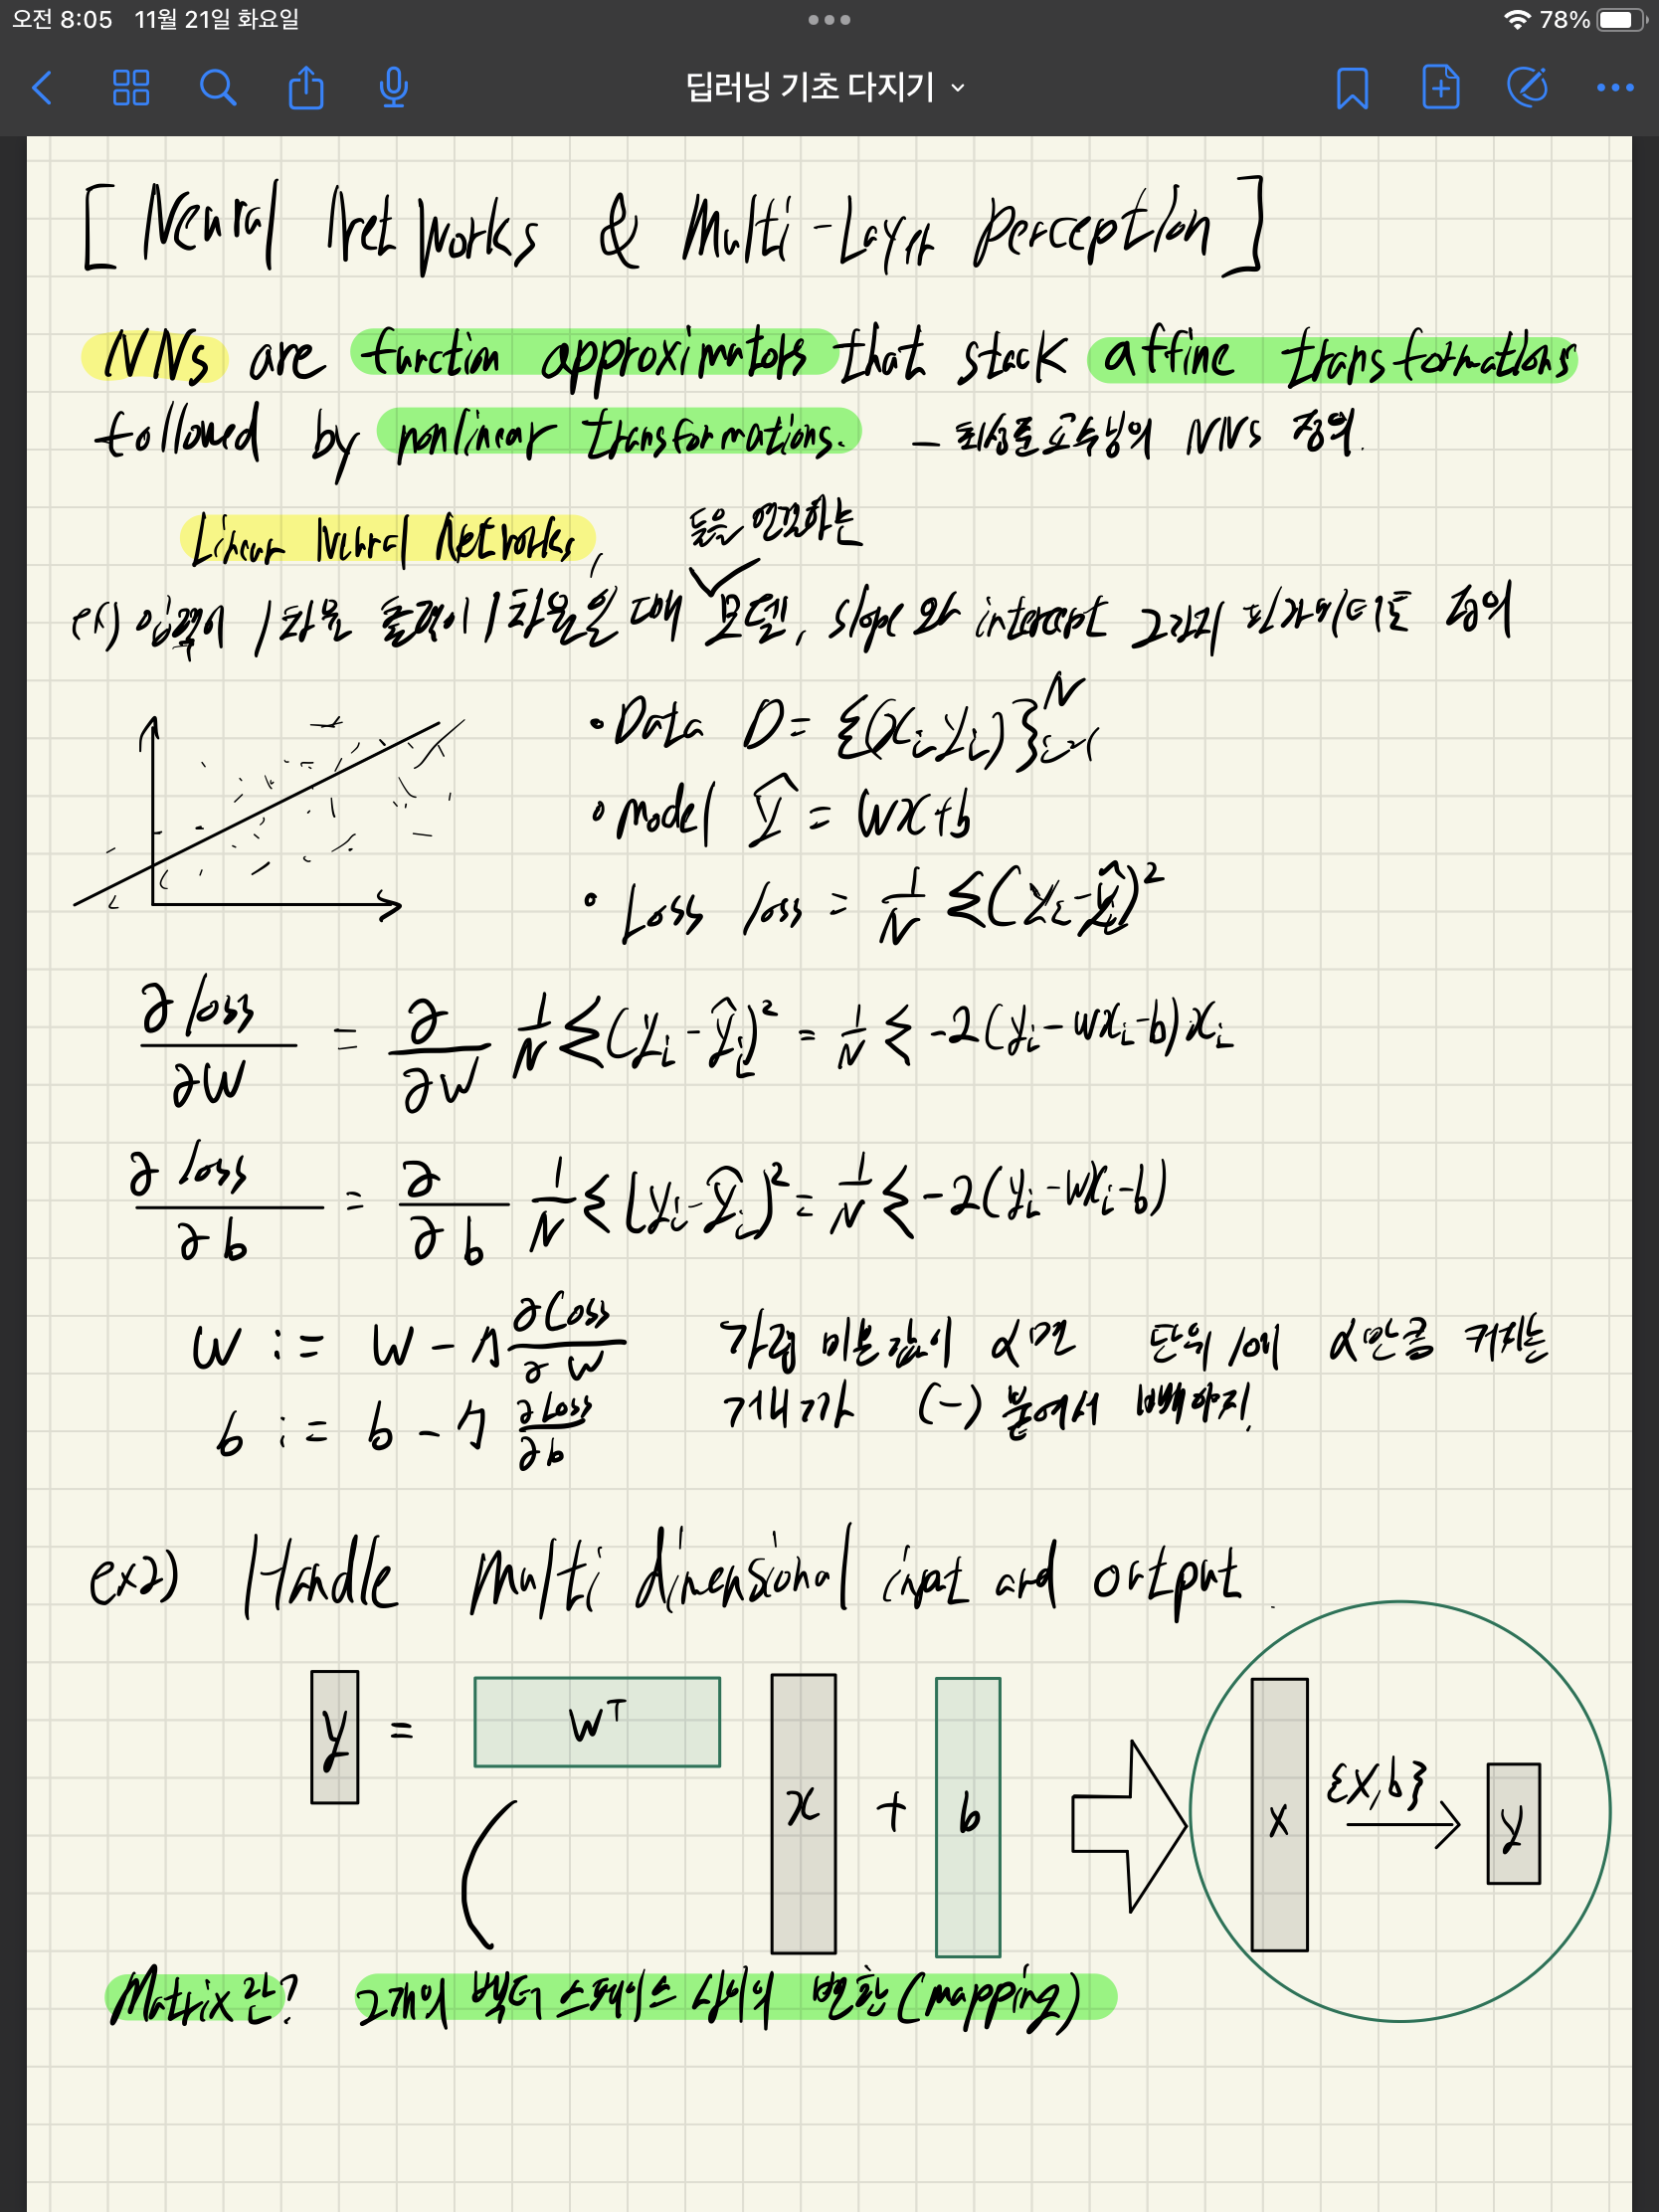 오전 8:05 11월 21일 화요일
78%
딥러닝 기초 다지기
[ Neural Networks & Multi-Layer Perception ]
NNs are function approximators that stack affine transformations
followed by nonlinear transformations. - 최성준교수님의 NNs 정의.
Linear Neural Networks,
들을 연결하는
ex) 입력이 1차원 출력이 1차원일 때 모델, slope와 intercept 2가지 파라미터로 정의
• Data D = {(xᵢ, yᵢ)}ᵢ₌₁ᴺ
• model ŷ = wx+b
• Loss loss = 1/N Σ(yᵢ-ŷᵢ)²
∂loss/∂w = ∂/∂w 1/N Σ(yᵢ-ŷᵢ)² = 1/N Σ -2(yᵢ-wxᵢ-b)xᵢ
∂loss/∂b = ∂/∂b 1/N Σ(yᵢ-ŷᵢ)² = 1/N Σ -2(yᵢ-wxᵢ-b)
w := w - η ∂Loss/∂w 미분 값이 α면 단위 1에 α만큼 커지는
b := b - η ∂Loss/∂b (-) 붙여서 빼야지!
ex2) Handle multi dimensional input and output.
y = wᵀ ( x + b
x {x,b} y
Matrix란? 2개의 벡터 스페이스 사이의 변환(mapping)